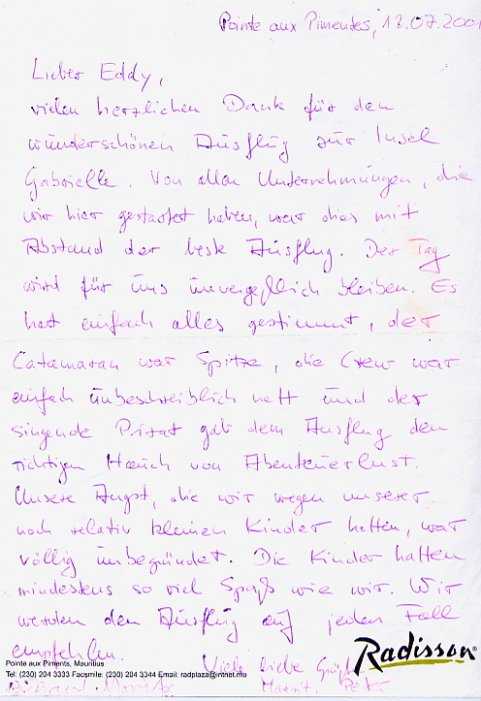 Pointe aux Pimentes, 18.07.2001
Lieber Eddy,
vielen herzlichen Dank für den
wunderschönen Ausflug zur Insel
Gabrielle. Von allen Unternehmungen, die
wir hier gestartet haben, war dies mit
Abstand der beste Ausflug. Der Tag
wird für uns unvergeßlich bleiben. Es
hat einfach alles gestimmt, der
Catamaran war Spitze, die Crew war
einfach unbeschreiblich nett und der
singende Pirat gab dem Ausflug den
richtigen Hauch von Abenteuerlust.
Unsere Angst, die wir wegen unserer
noch relativ kleinen Kinder hatten, war
völlig unbegründet. Die Kinder hatten
mindestens so viel Spaß wie wir. Wir
werden den Ausflug auf jeden Fall
empfehlen.
Viele liebe Grüße
Radisson
Pointe aux Piments, Mauritius
Tel: (230) 204 3333 Facsmile: (230) 204 3344 Email: radplaza@intnet.mu